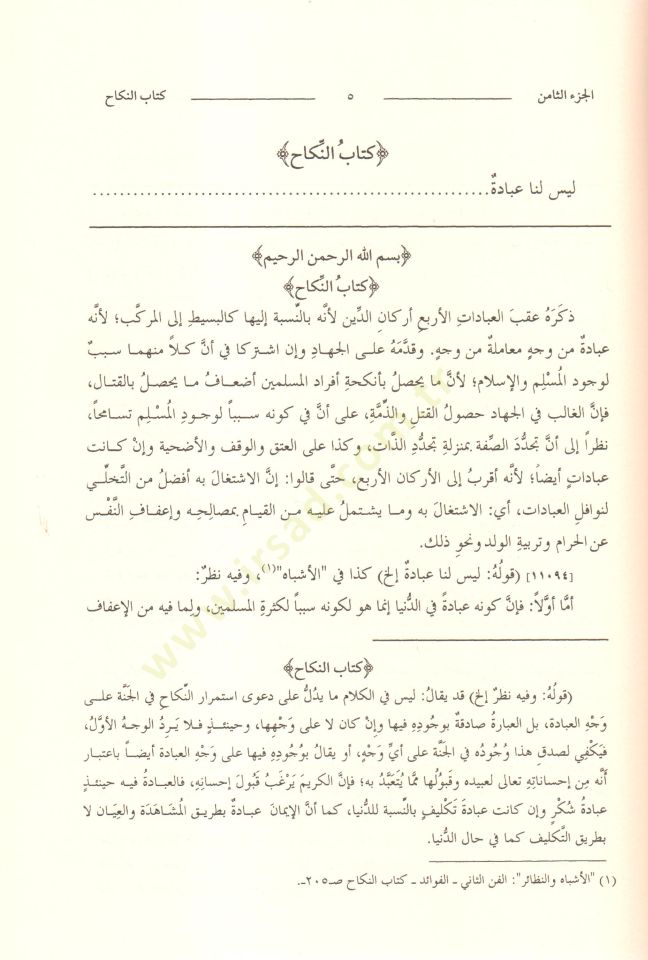 الجزء الثامن ــــــــــــــ ٥ ــــــــــــــ كتاب النكاح
﴿كتابُ النِّكاح﴾
ليس لنا عبادةٌ............................................................
﴿بسم الله الرحمن الرحيم﴾
﴿كتابُ النِّكاح﴾
ذكَرَهُ عقبَ العباداتِ الأربعِ أركانِ الدِّين لأنه بالنِّسبة إليها كالبسيطِ إلى المركَّب؛ لأنَّه
عبادةٌ من وجهٍ معاملةٌ من وجهٍ. وقدَّمَهُ على الجهادِ وإن اشتركا في أنَّ كلاًّ منهما سببٌ
لوجود المُسْلِم والإسلام؛ لأنَّ ما يحصلُ بأنكحةِ أفراد المسلمين أضعافُ ما يحصلُ بالقتال،
فإنَّ الغالب في الجهاد حصولُ القتلِ والذِّمَّةِ، على أنَّ في كونه سبباً لوجودِ المُسْلِم تسامحاً،
نظراً إلى أنَّ تجدُّدَ الصِّفة بمنزلةِ تجدُّدِ الذَّات، وكذا على العتق والوقف والأضحية وإنْ كانت
عباداتٍ أيضاً؛ لأنَّه أقربُ إلى الأركان الأربع، حتَّى قالوا: إنَّ الاشتغالَ به أفضلُ من التَّخلِّي
لنوافلِ العبادات، أي: الاشتغال به وما يشتملُ عليه من القيامِ بمصالحِه وإعفافِ النَّفْس
عن الحرام وتربيةِ الولد ونحوِ ذلك.
[١١٠٩٤] (قولُهُ: ليس لنا عبادةٌ إلخ) كذا في "الأشباه"(١)، وفيه نظرٌ:
أمَّا أوَّلاً: فإنَّ كونه عبادةً في الدُّنيا إنما هو لكونه سبباً لكثرةِ المسلمين، ولِما فيه من الإعفاف
﴿كتاب النكاح﴾
(قولُهُ: وفيه نظرٌ إلخ) قد يقالُ: ليس في الكلام ما يدُلُّ على دعوى استمرار النِّكاحِ في الجَنَّة على
وَجْهِ العبادة، بل العبارةُ صادقةٌ بوجُودِه فيها وإنْ كان لا على وَجْهِها، وحينئذٍ فلا يَرِدُ الوجهُ الأوَّلُ،
فيَكْفِي لصدقِ هذا وُجُودُه في الجَنَّة على أيِّ وَجْهٍ، أو يقالُ بوُجُودِه فيها على وَجْهِ العبادة أيضاً باعتبار
أنَّه مِن إحساناتِه تعالى لعبيده وقَبولُها ممَّا يُتَعَبَّدُ به؛ فإنَّ الكريمَ يَرْغَبُ قَبُولَ إحسانِهِ، فالعبادةُ فيه حينئذٍ
عبادةُ شُكْرٍ وإن كانت عبادةَ تَكْليفٍ بالنِّسبة للدُّنيا، كما أنَّ الإيمانَ عبادةٌ بطريق المُشاهَدَة والعِيَان لا
بطريق التَّكليف كما في حال الدُّنيا.
(١) "الأشباه والنظائر": الفن الثاني ـ الفوائد ـ كتاب النكاح صـ٢٠٥ـ.
www.irsad.com.tr